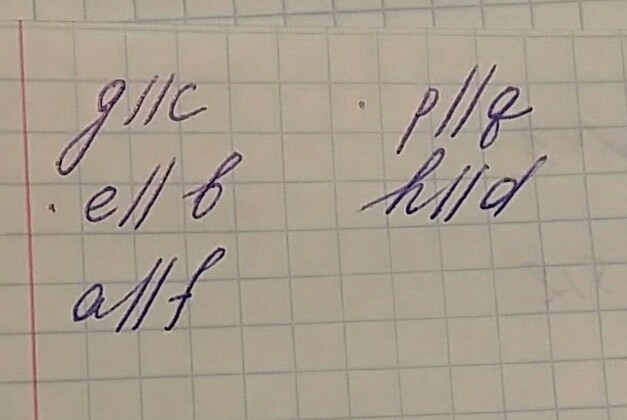 g//c
e//b
a//f
p//q
h//d